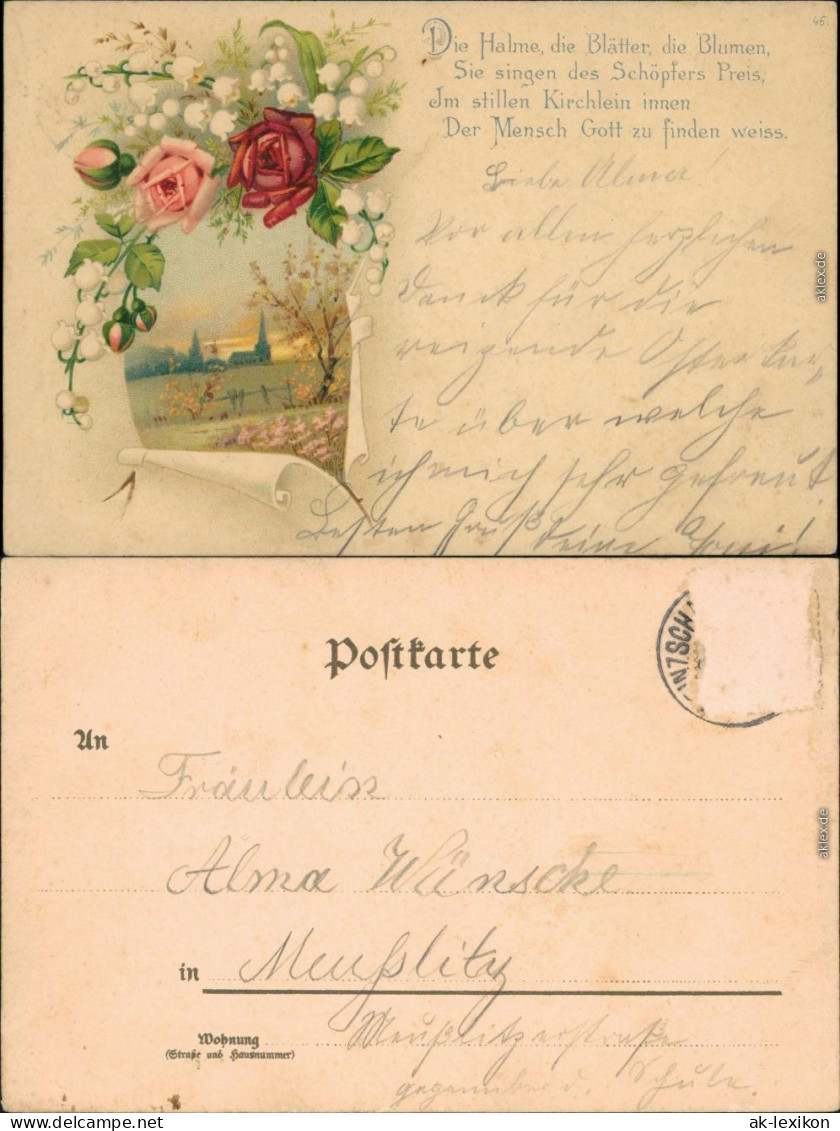 46.
Die Halme, die Blätter, die Blumen,
Sie singen des Schöpfers Preis,
Im stillen Kirchlein innen
Der Mensch Gott zu finden weiss.
Liebe Alma!
Vor allen herzlichen
Danck für die
reizende Osterkar-
te über welche
ich mich sehr gefreut.
Besten Gruß deine
aklex.de
Postkarte
INZSCH
An
Fräulein
Alma Wünsche
in Meußlitz
Wohnung
(Straße und Hausnummer)
Meußlitzerstraße
gegenüber d. Schule.
aklex.de
ak-lexikon